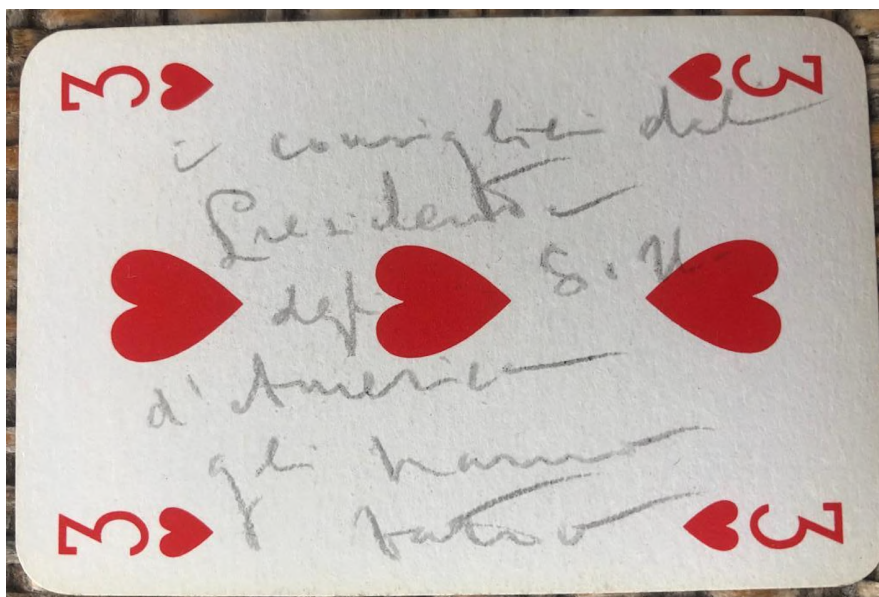 3 3
i consiglieri del
Presidente
degli S. U.
d'America
gli hanno
fatto
3 3